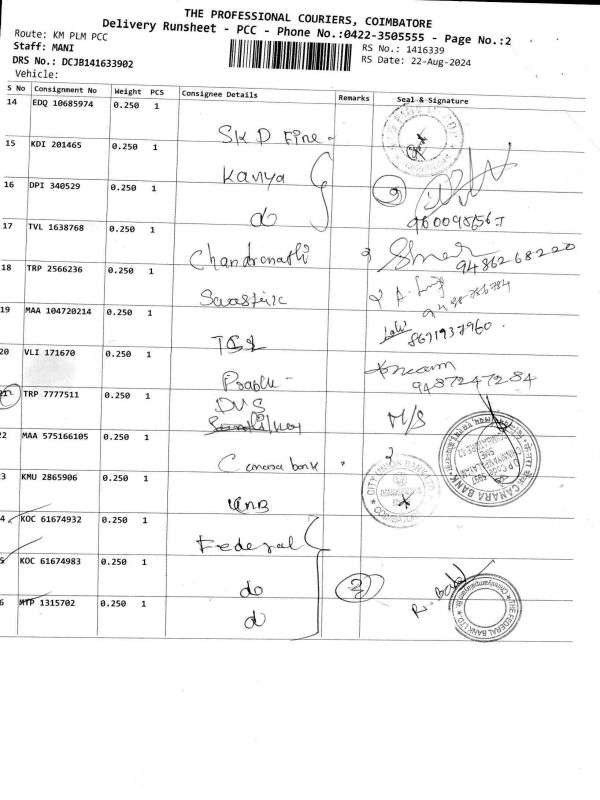 THE PROFESSIONAL COURIERS, COIMBATORE
Delivery Runsheet - PCC - Phone No.:0422-3505555 - Page No.:2
Route: KM PLM PCC
Staff: MANI
RS No.: 1416339
DRS No.: DCJB141633902
RS Date: 22-Aug-2024
Vehicle:
S No Consignment No Weight PCS Consignee Details Remarks Seal & Signature
14 EDQ 10685974 0.250 1
SKD Fine
15 KDI 201465 0.250 1 Kavya
16 DPI 340529 0.250 1 do
17 TVL 1638768 0.250 1
9486268220
18 TRP 2566236 0.250 1
19 MAA 104720214 0.250 1
8671937960
20 VLI 171670 0.250 1 Prabhu
9487247284
TRP 7777511 0.250 1 DVS M/S
2 MAA 575165105 0.250 1 Canara bank
CANARA BANK
CITY UNION BANK LTD
COIMBATORE
3 KMU 2865906 0.250 1
4 KOC 61674932 0.250 1 Federal
5 KOC 61674983 0.250 1 do
6 MTP 1315702 0.250 1 do
THE FEDERAL BANK LTD